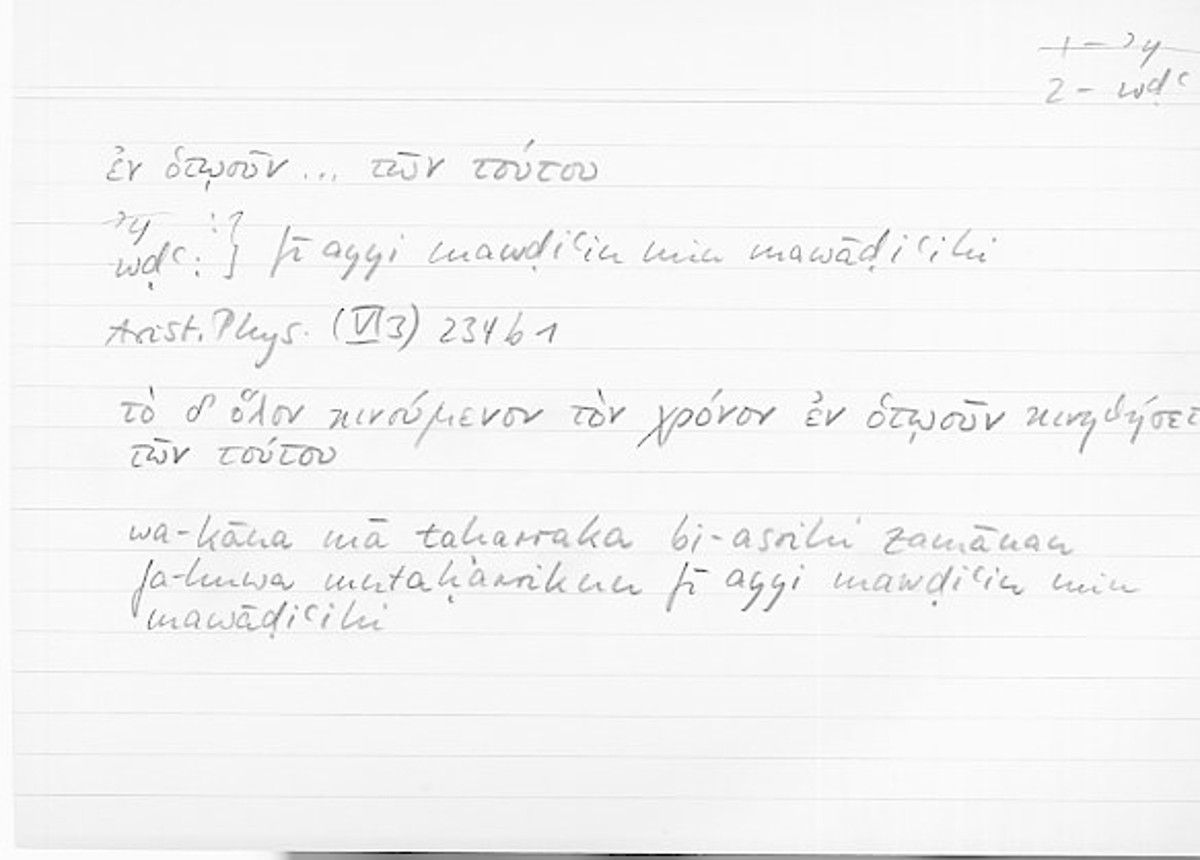 1 – ʾy
2 – wḍʿ
ἐν ὁτῳοῦν ... τῶν τούτου
ʾy :}
wḍʿ : } fī ayyi mawḍiʿin min mawāḍiʿihi
Arist. Phys. (VI 3) 234 b 1
τὸ δ' ὅλον κινούμενον τὸν χρόνον ἐν ὁτῳοῦν κινηθήσετ
τῶν τούτου
wa-kāna mā taḥarraka bi-asrihi zamānan
fa-huwa mutaḥarrikun fī ayyi mawḍiʿin min
mawāḍiʿihi